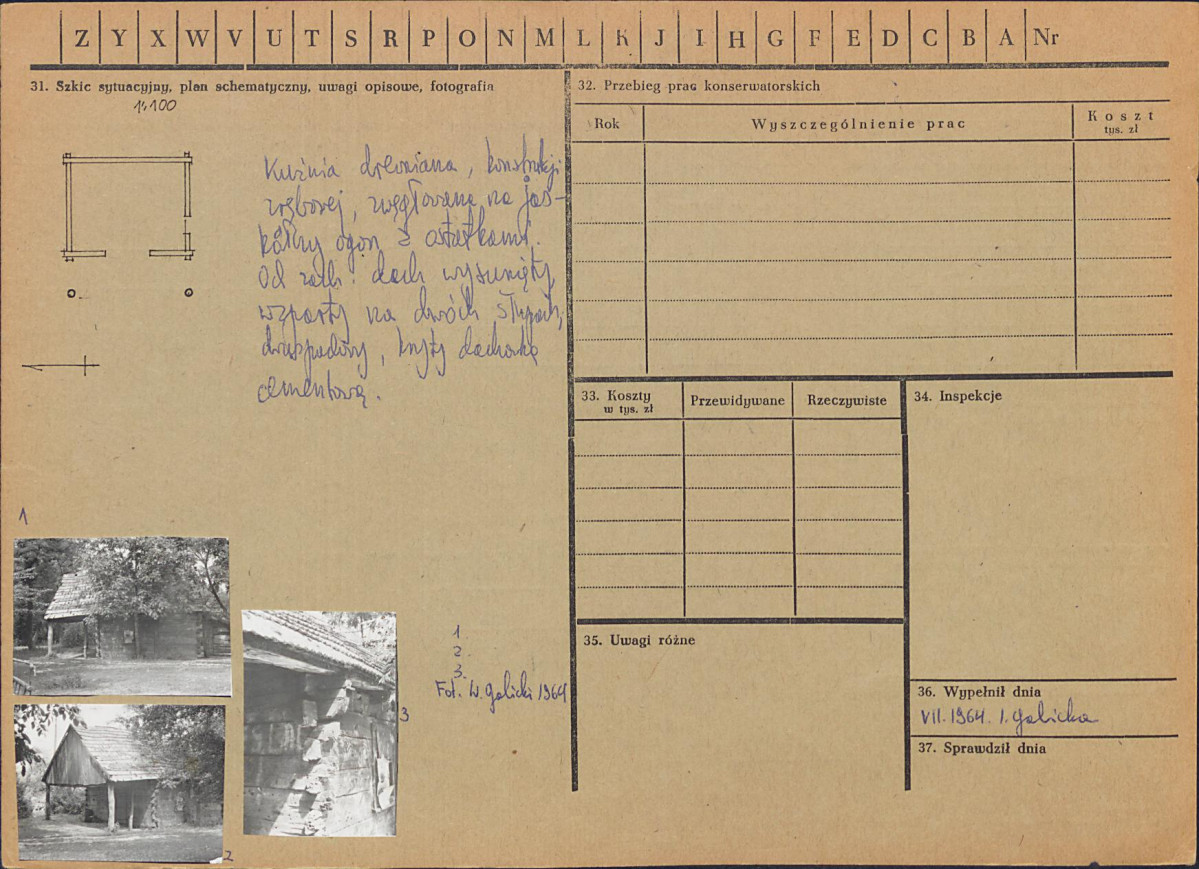 Z Y X W V U T S R P O N M L K J I H G F E D C B A Nr
31. Szkic sytuacyjny, plan schematyczny, uwagi opisowe, fotografia
1:100
Kuźnia drewniana, konstrukcji
zrębowej, węgłowana na jas-
kółczy ogon z ostatkami.
Od zach. dach wysunięty,
wzparty na dwóch słupach,
dwuspadowy, kryty dachówką
cementową.
1
2
3
1
2.
3.
Fot. W. Galicki 1964
32. Przebieg prac konserwatorskich
Rok
Wyszczególnienie prac
Koszt
tys. zł
33. Koszty
w tys. zł
Przewidywane
Rzeczywiste
34. Inspekcje
35. Uwagi różne
36. Wypełnił dnia
VII. 1964. I. Galicka
37. Sprawdził dnia